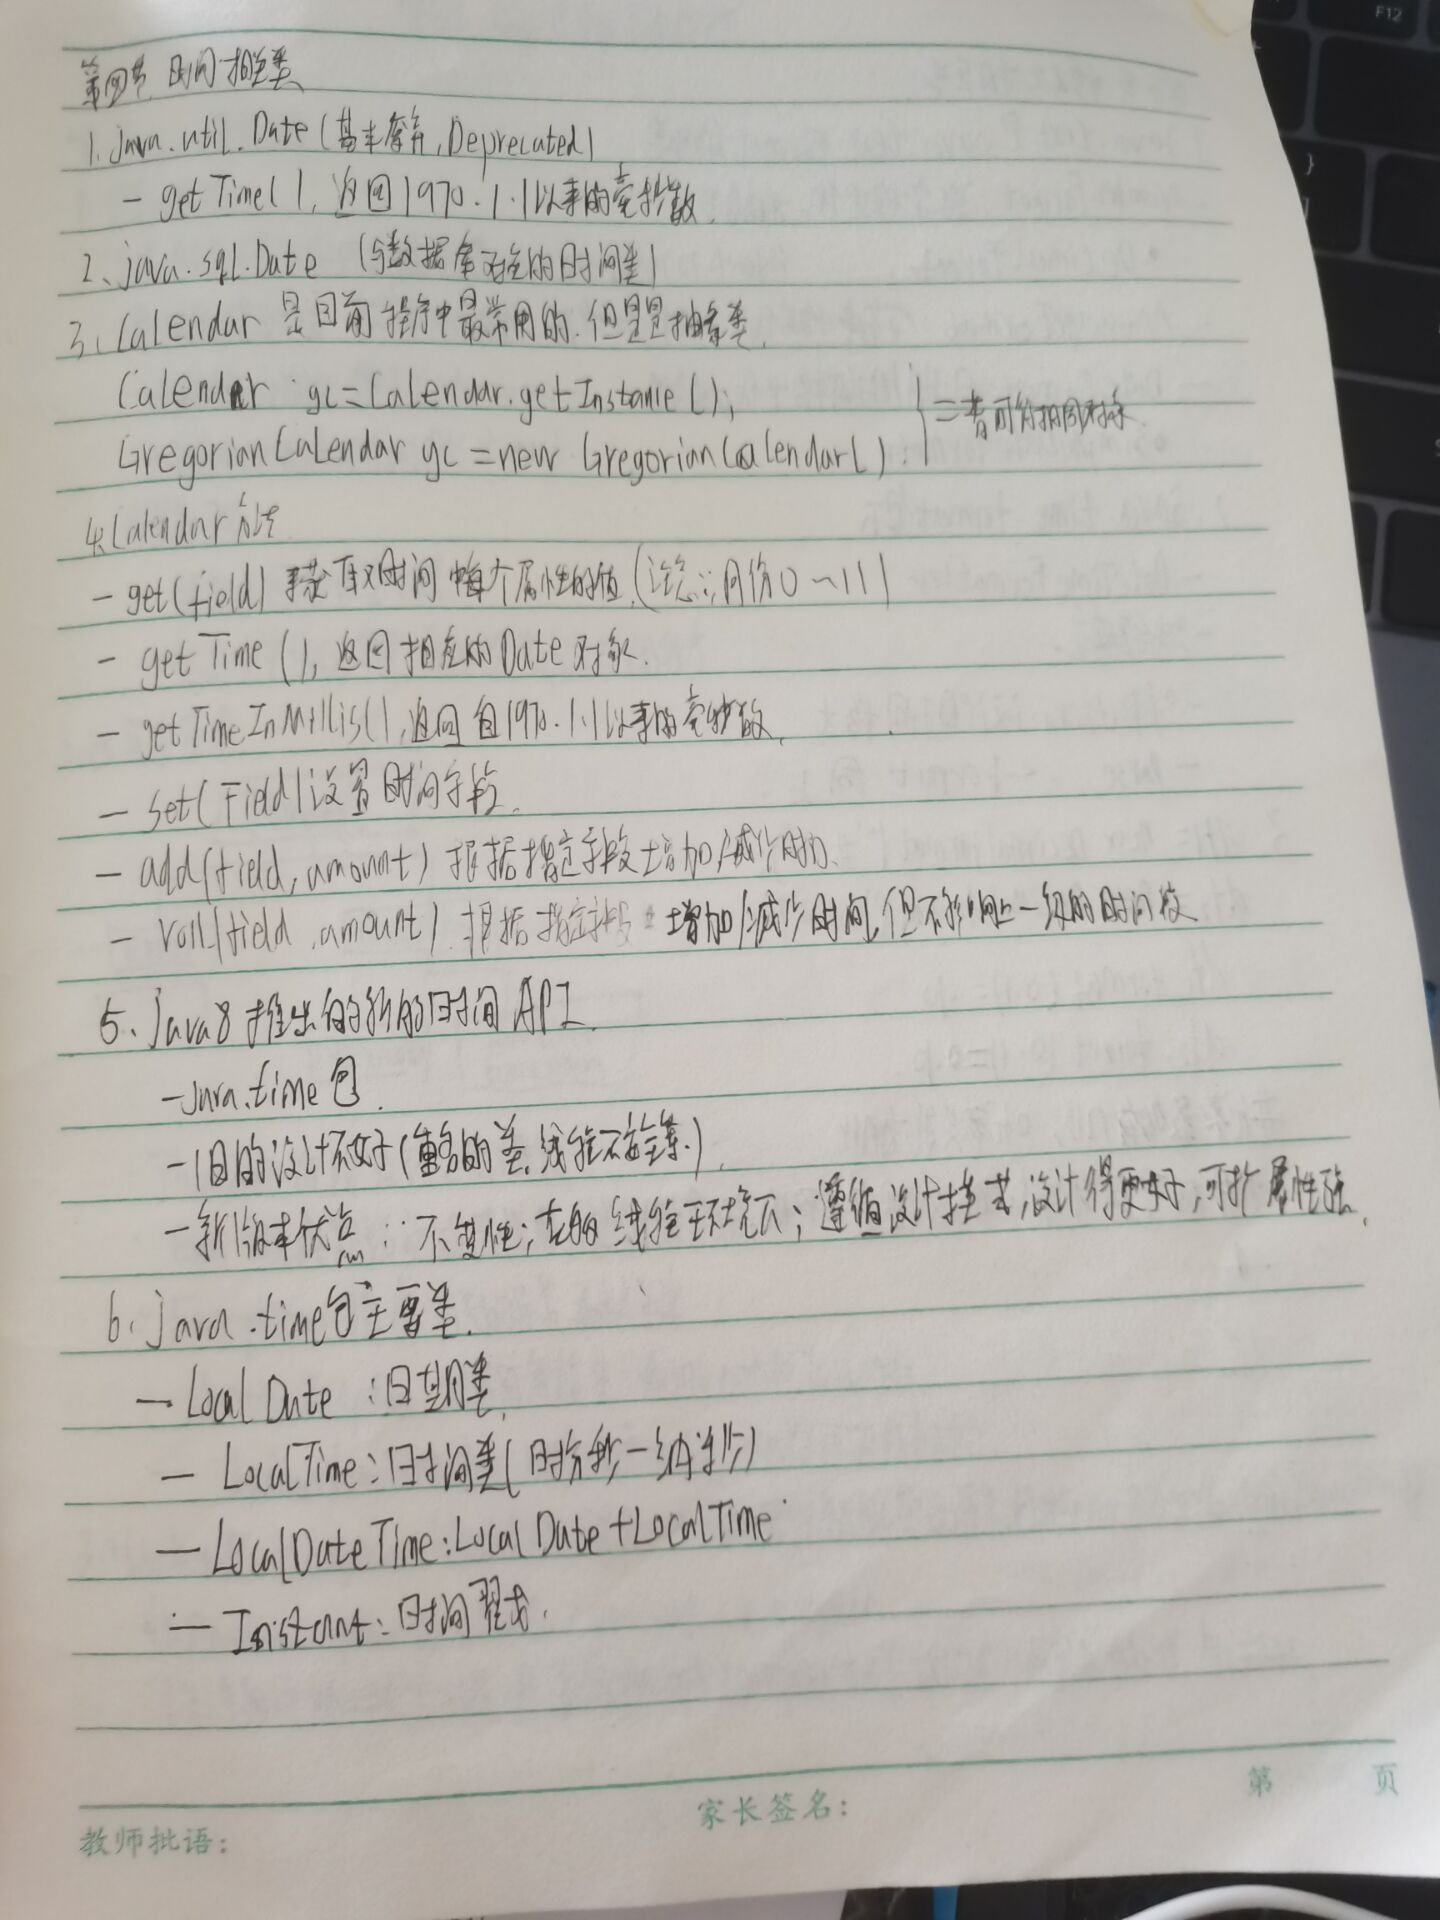 第四节 时间相关类
1. Java.util.Date(基本废弃,Deprecated)
- getTime(), 返回1970.1.1以来的毫秒数.
2、java.sql.Date (与数据库对应的时间类)
3、Calendar 是目前程序中最常用的.但是是抽象类.
Calendar gc=Calendar.getInstance();
GregorianCalendar gc=new GregorianCalendar().
二者可分相同对象.
4.Calendar 方法
- get(field) 来获取时间中每个属性的值.(注意:月份0~11)
- getTime(), 返回相应的Date对象.
- getTimeInMillis(),返回自1970.1.1以来的毫秒数.
- set(Field)设置时间字段.
- add(field,amount) 根据指定字段增加/减少时间.
- roll(field,amount).根据指定字段 增加/减少时间,但不影响上一级的时间段
5、Java8推出的新的时间API.
- java.time包.
- 旧的设计不好(重名的类,线程不安全等.).
- 新版本优点:不变性;在多线程环境下;遵循设计模式,设计得更好,可扩展性强.
6、java.time包主要类.
- LocalDate:日期类.
- LocalTime:时间类(时分秒-纳秒)
- LocalDateTime:LocalDate+LocalTime
- Instant:时间戳.
第 页
家长签名:
教师批语: